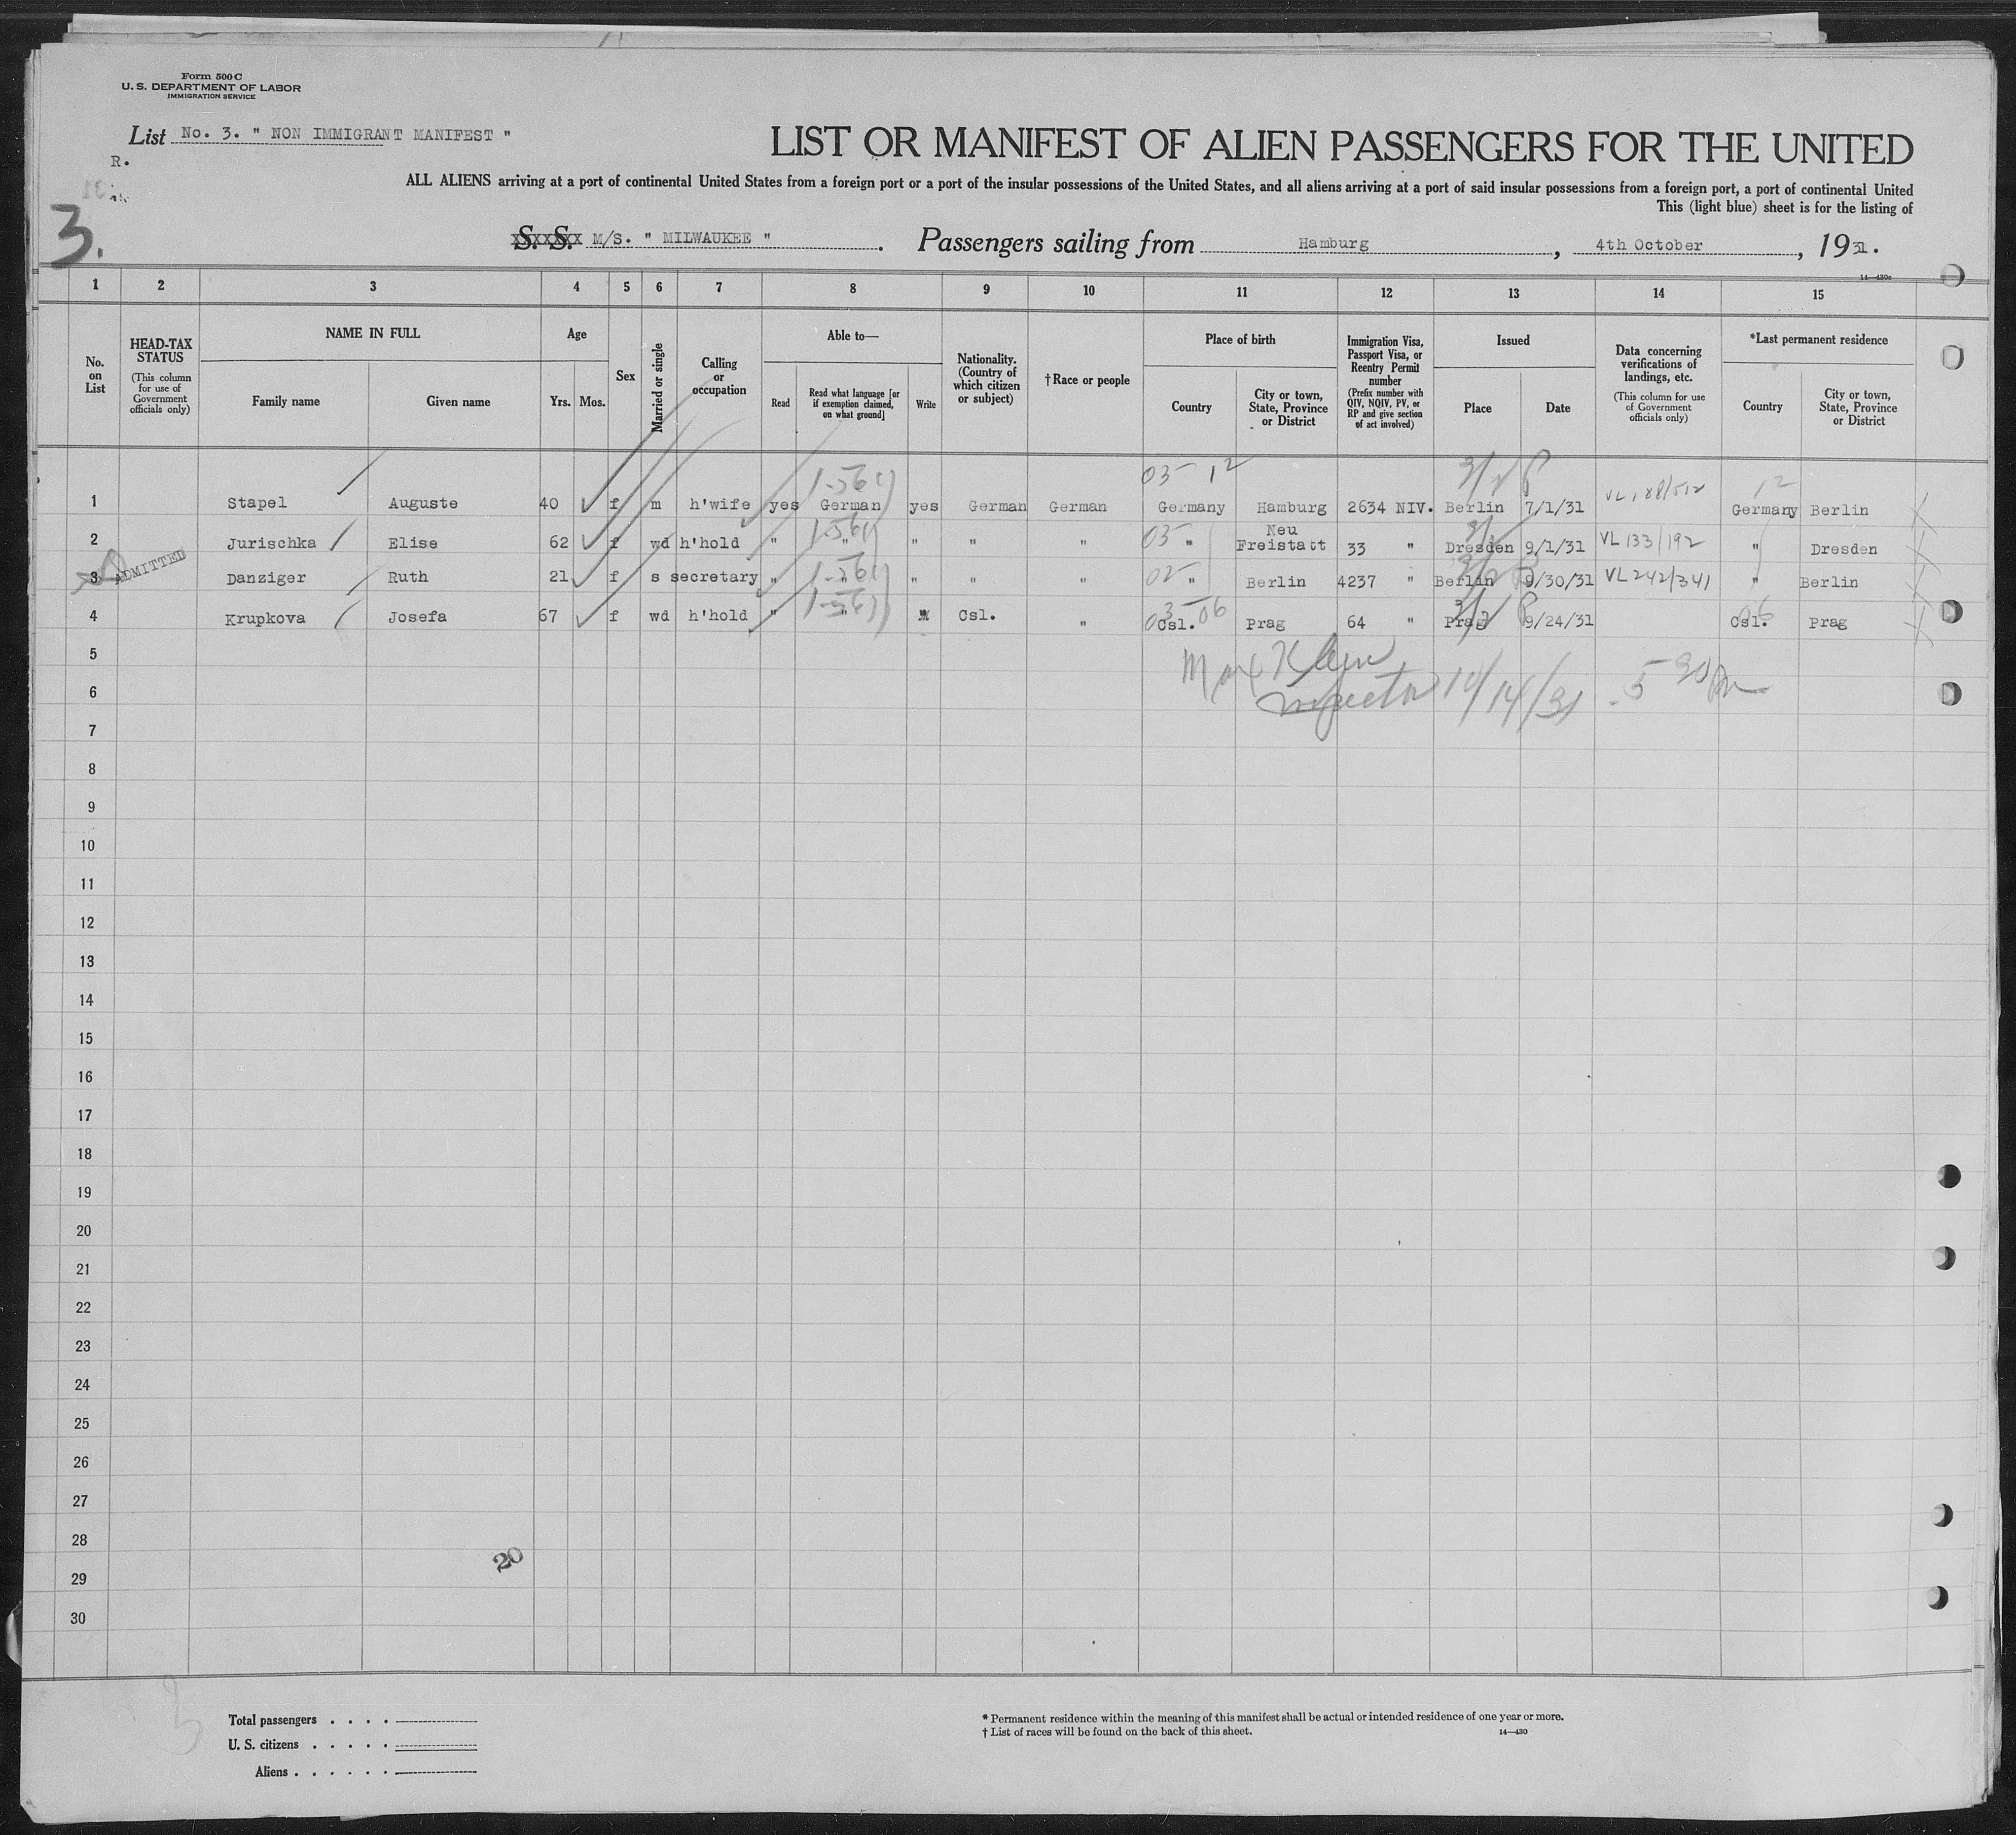 Form 500 C
U. S. DEPARTMENT OF LABOR
IMMIGRATION SERVICE
List No. 3. " NON IMMIGRANT MANIFEST "
R.
LIST OR MANIFEST OF ALIEN PASSENGERS FOR THE UNITED
ALL ALIENS arriving at a port of continental United States from a foreign port or a port of the insular possessions of the United States, and all aliens arriving at a port of said insular possessions from a foreign port, a port of continental United
This (light blue) sheet is for the listing of
3.
S. S. M/S. " MILWAUKEE " . Passengers sailing from Hamburg , 4th October , 19 31 .
14—430c
1 2 3 4 5 6 7 8 9 10 11 12 13 14 15
No. on List
HEAD-TAX STATUS
(This column for use of Government officials only)
NAME IN FULL
Family name Given name
Age
Yrs. Mos.
Sex
Married or single
Calling or occupation
Able to—
Read
Read what language [or if exemption claimed, on what ground]
Write
Nationality. (Country of which citizen or subject)
† Race or people
Place of birth
Country
City or town, State, Province or District
Immigration Visa, Passport Visa, or Reentry Permit number
(Prefix number with QIV, NQIV, PV, or RP and give section of act involved)
Issued
Place Date
Data concerning verifications of landings, etc.
(This column for use of Government officials only)
*Last permanent residence
Country
City or town, State, Province or District
03-12 12
1 Stapel Auguste 40 f m h'wife yes German yes German German Germany Hamburg 2634 NIV. Berlin 7/1/31 VL 188/512 Germany Berlin
2 Jurischka Elise 62 f wd h'hold " " " " " 03 " Neu Freistatt 33 " Dresden 9/1/31 VL 133/192 " Dresden
ADMITTED
3 Danziger Ruth 21 f s secretary " " " " " 02 " Berlin 4237 " Berlin 9/30/31 VL 242/341 " Berlin
4 Krupkova Josefa 67 f wd h'hold " " " Csl. " 03-06 Csl. Prag 64 " Prag 9/24/31 06 Csl. Prag
5
Max Klein
6
Inspector 10/14/31 5 30 pm
7
8
9
10
11
12
13
14
15
16
17
18
19
20
21
22
23
24
25
26
27
28
20
29
30
Total passengers . . . .
U. S. citizens . . . . .
Aliens . . . . . .
* Permanent residence within the meaning of this manifest shall be actual or intended residence of one year or more.
† List of races will be found on the back of this sheet.
14—430